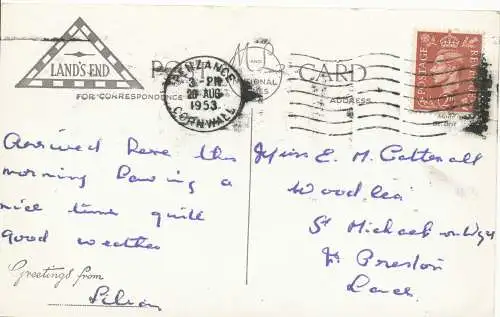 LAND'S END
POST CARD
FOR CORRESPONDENCE
ADDRESS
PENZANCE
3 - PM
20 AUG
1953
CORNWALL
POSTAGE
Arrived here this
morning having a
nice time quite
good weather
Greetings from
Lilian
Miss E. M. Cattenall
Woodlea
St Michaels on Wyre
Nr Preston
Lancs